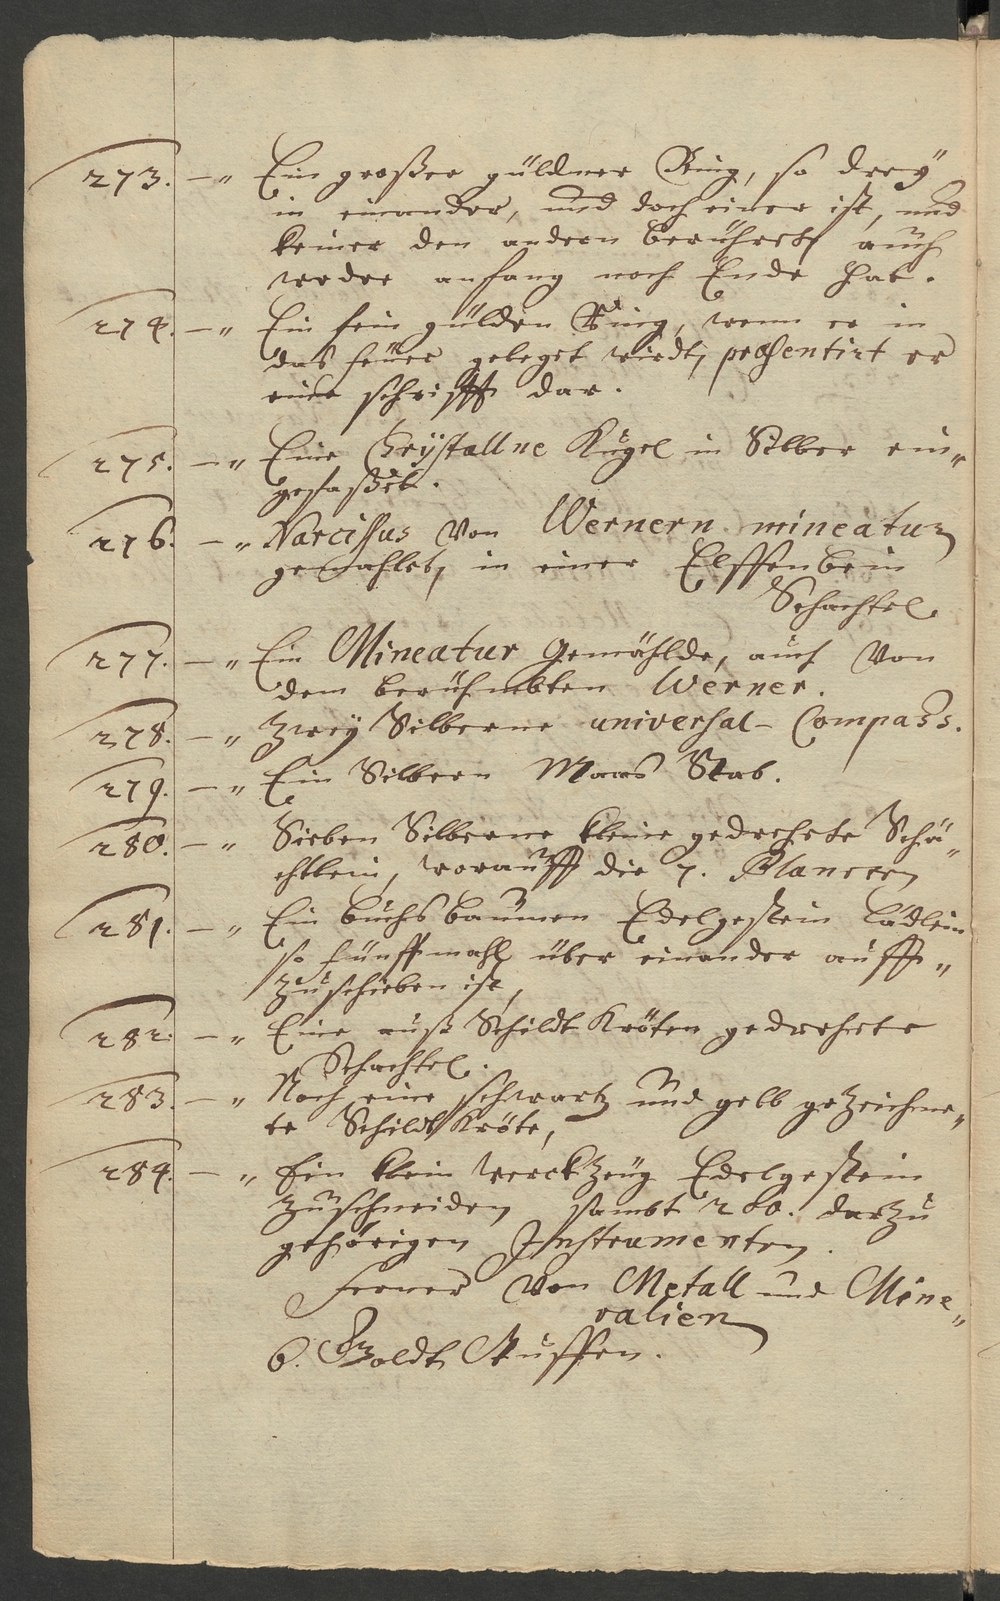 273. – „ Ein großer güldner Ring, so dreÿ
in einander, und doch einer ist, und
keiner den andern berühret, auch
weder anfang noch Ende hat.
274. – „ Ein fein gülden Ring, wenn er in
das feüer geleget wirdt, præsentirt er
eine schrifft dar.
275. – „ Eine Crÿstallne Kugel in Silber ein„
gefaßet.
276. – „ Narcissus von Wernern mineatur
gemahlet, in einer Elffenbein
Schachtel.
277. – „ Ein Mineatur Gemählde, auch von
dem berühmbten Werner.
278. – „ Zweÿ Silberne universal- Compass.
279. – „ Ein Silbern Maas Stab.
280. – „ Sieben Silberne kleine gedrehete Schä„
chtlein, worauff die 7. Planeten
281. – „ Ein buchsbaumen Edelgestein Lädlein
so fünffmahl über einander auff„
zuschieben ist,
282. – „ Eine auß Schildt Kröten gedrehete
Schachtel.
283. – „ Noch eine schwartz und gelb gezeichne„
te Schildt Kröte,
284. – „ Ein klein werckzeug Edelgestein
zuschneiden sambt 280. darzu
gehörigen Instrumenten.
Ferner von Metall und Mine„
ralien
6. Goldt Stuffen.